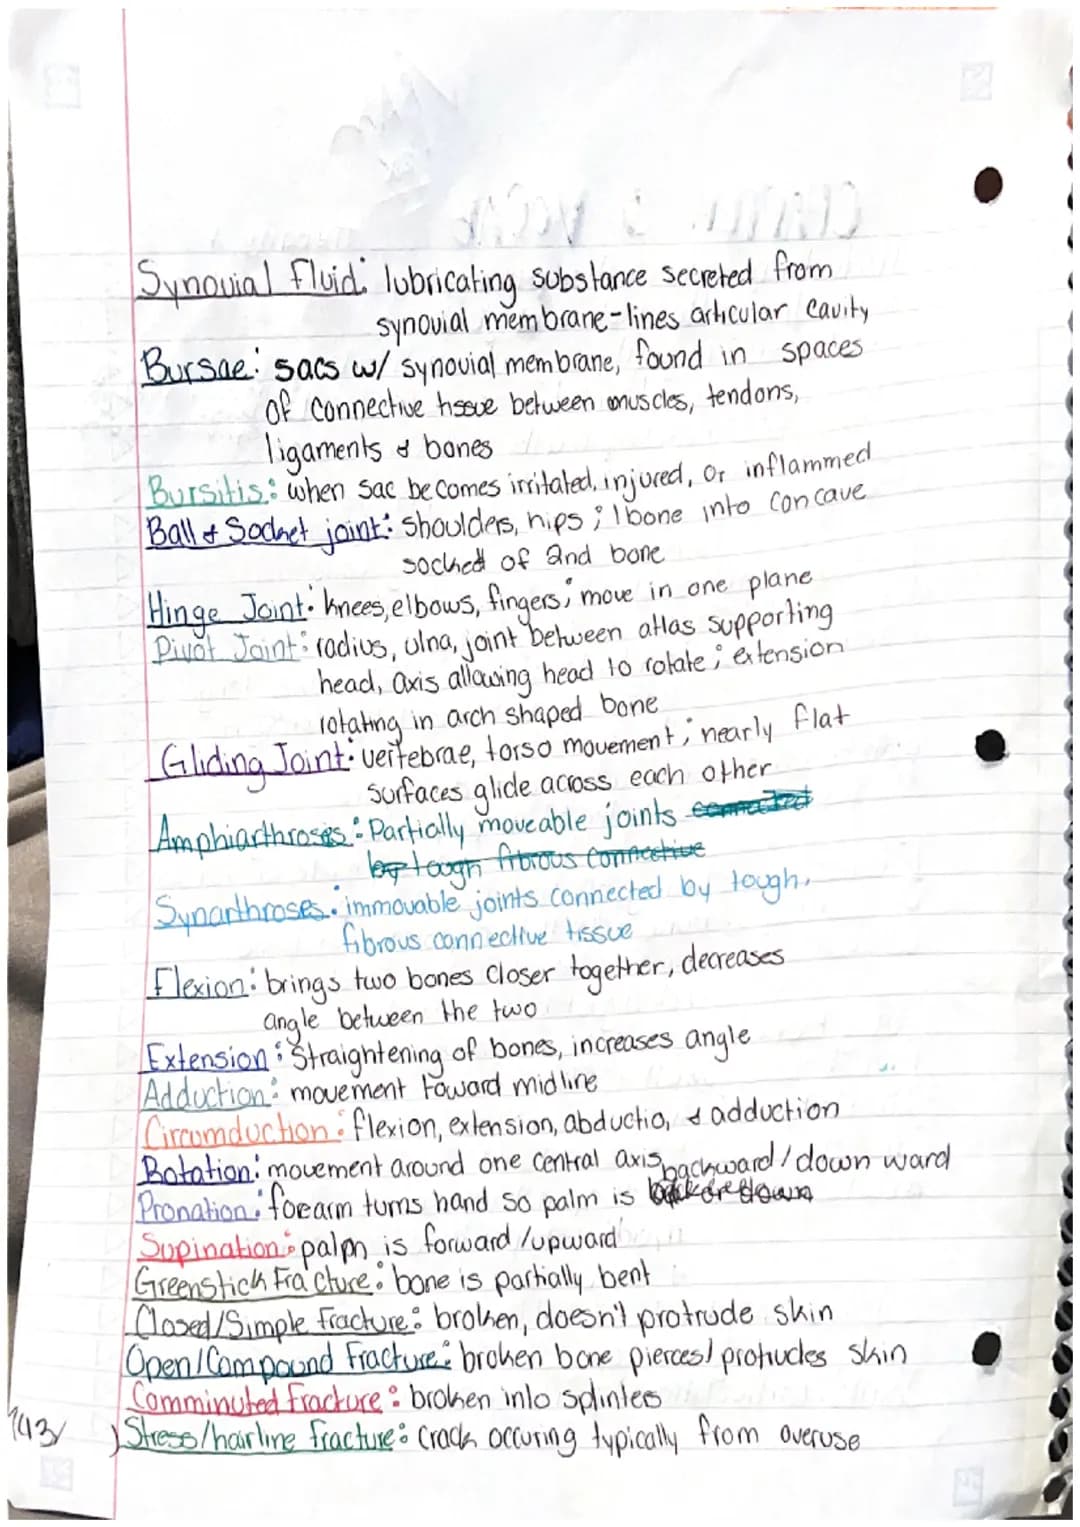 Synovial Fluid: lubricating substance secreted from
synovial membrane-lines articular cavity
Bursae: sacs w/ synovial membrane, found in spaces
of connective tissue between muscles, tendons,
ligaments & bones
Bursitis: when sac becomes irritated, injured, or inflammed
Ball & Socket joint: shoulders, hips; 1 bone into concave
socket of 2nd bone
Hinge Joint: knees, elbows, fingers; move in one plane
Pivot Joint: radius, ulna, joint between atlas supporting
head, axis allowing head to rotate; extension
rotating in arch shaped bone
Gliding Joint: vertebrae, torso movement; nearly flat
surfaces glide across each other
Amphiarthroses: Partially moveable joints connected
by tough fibrous connective
Synarthroses: immovable joints connected by tough,
fibrous connective tissue
Flexion: brings two bones closer together, decreases
angle between the two
Extension: Straightening of bones, increases angle
Adduction: movement toward midline
Circumduction: flexion, extension, abductio, & adduction
Rotation: movement around one central axis
backward/downward
Pronation: forearm turns hand so palm is back or down
Supination: palm is forward/upward
Greenstick Fracture: bone is partially bent
Closed/Simple Fracture: broken, doesn't protrude skin
Open/Compound Fracture: broken bone pierces/protrudes skin
Comminuted Fracture: broken into splinters
Stress/hairline fracture: crack occuring typically from overuse